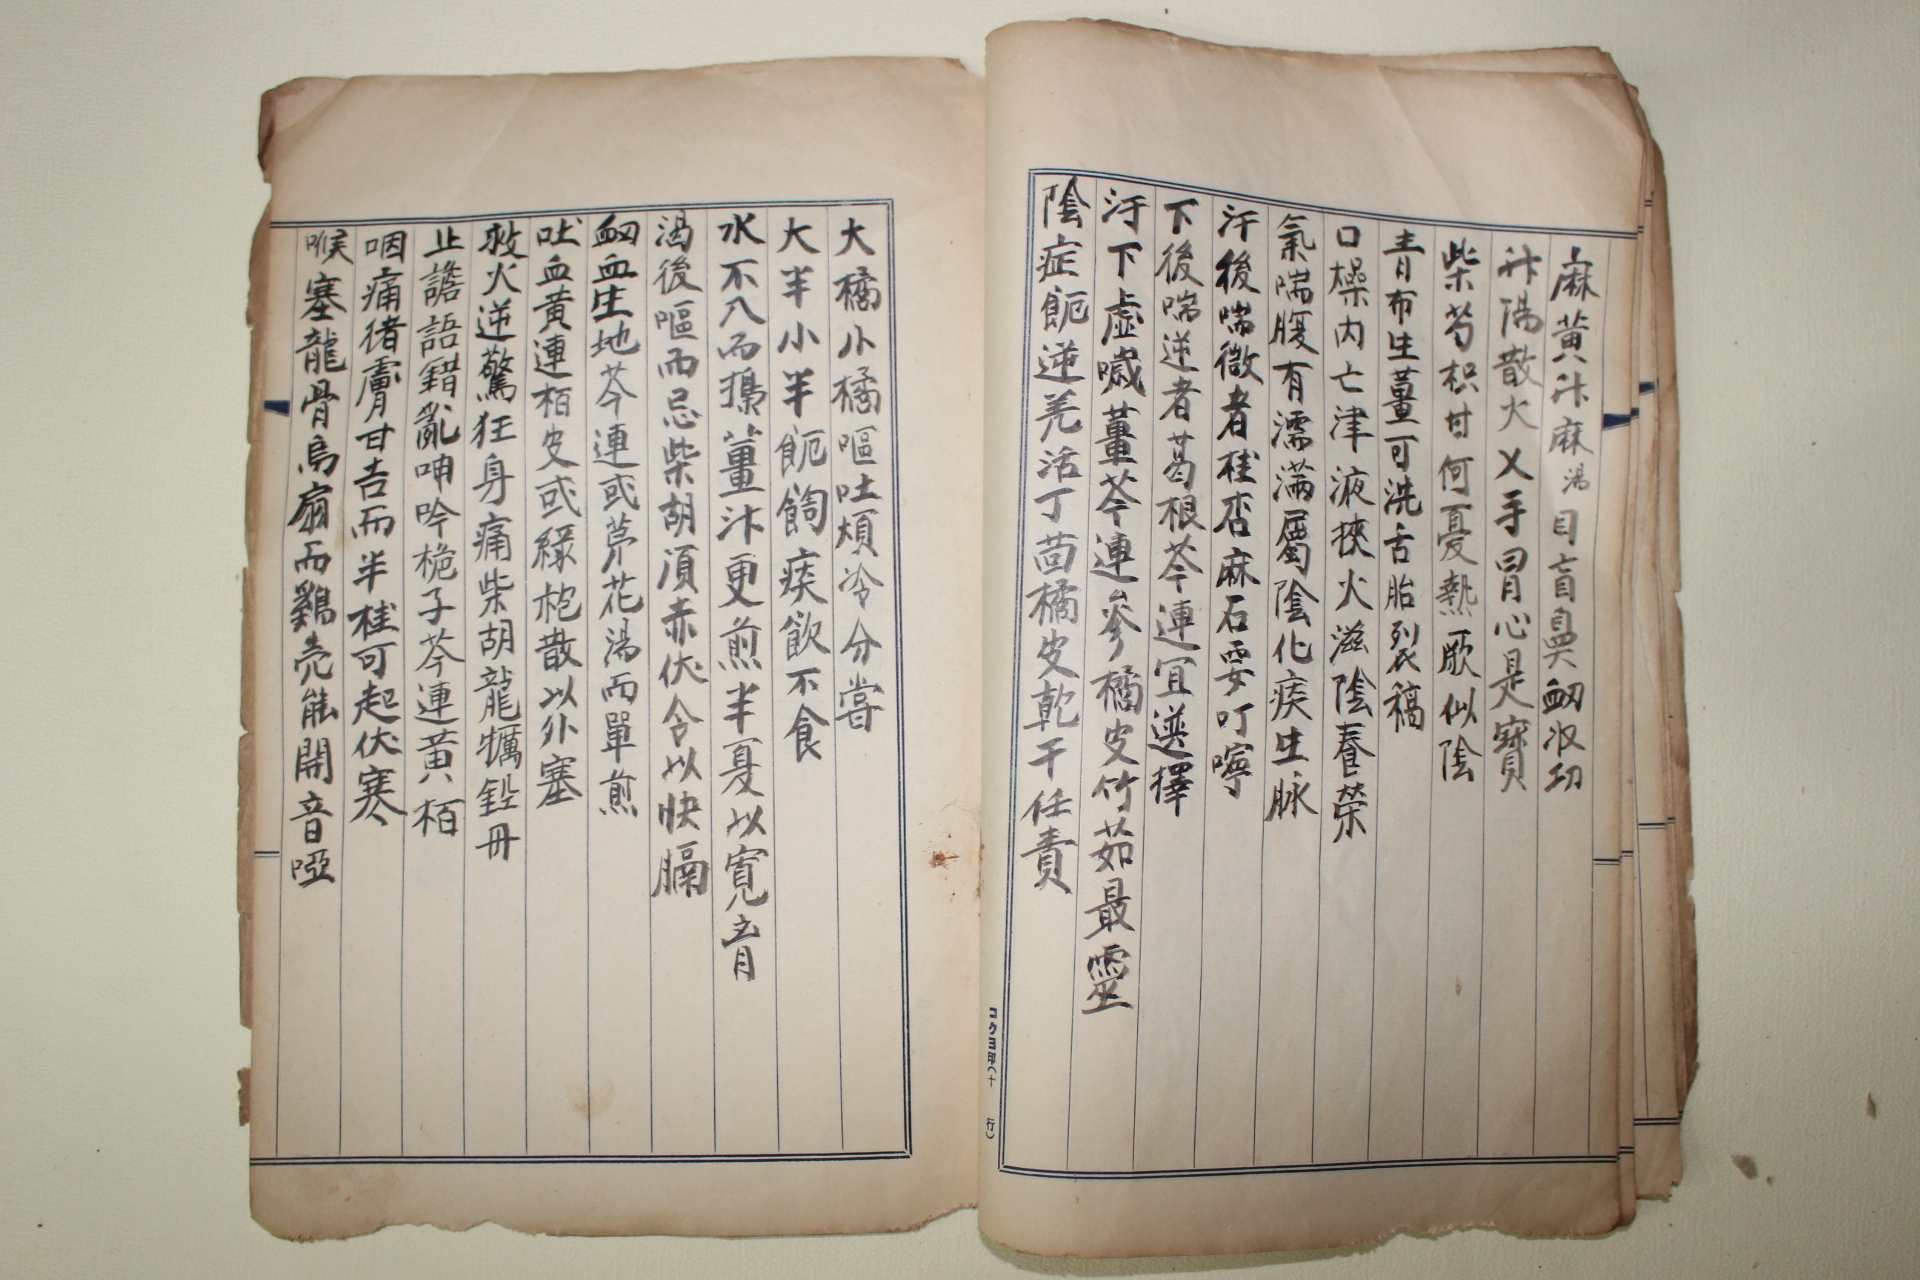 麻黃汴麻湯目盲鼻衂収功
汴陽散火乂手冒心是寶
柴芍枳甘何憂熱厥似陰
青布生薑可洗舌胎裂稿
口橾内亡津液挾火滋陰養榮
氣喘腹有濡滿屬陰化痰生脉
汗後喘微者桂杏麻石要叮嚀
下後喘逆者葛根芩連宜選擇
汗下虛噦薑芩連參橘皮竹茹最靈
陰症飥逆羌活丁茴橘皮乾干任責
大橘小橘嘔吐煩冷分嘗
大半小半飥飼痰飮不食
水不入而搗薑汴更煎半夏以寬育
渴後嘔而忌柴胡湏赤伏令以快膈
衂血生地芩連或茅花湯而單煎
吐血黃連栢皮或綠枹散以外塞
救火逆驚狂身痛柴胡龍犡鉛冊
止譫語錯亂呻吟桅子芩連黃栢
咽痛猪膚甘吉而半桂可起伏寒
喉塞龍骨烏扇而鷄壳能開音啞
コクヨ印(十 行)